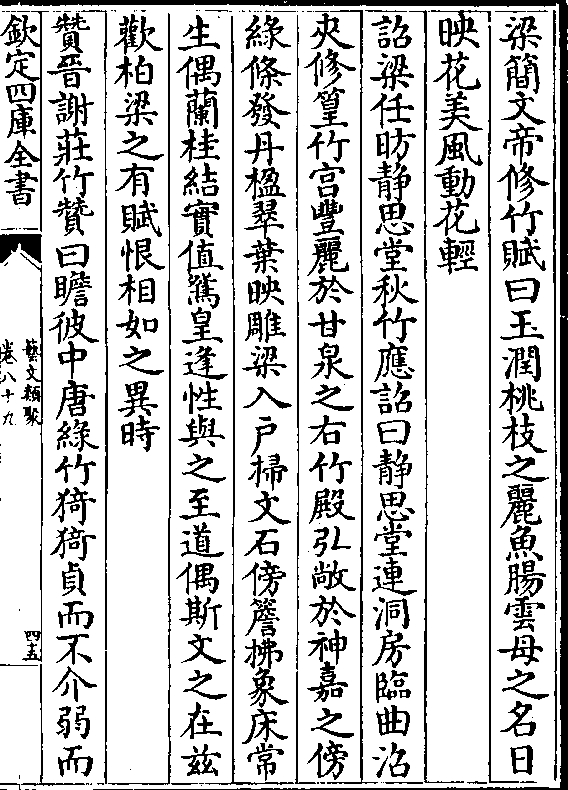 梁簡文帝修竹賦曰玉潤桃枝之麗魚腸雲母之名日
映花美風動花輕
詔梁任昉静思堂秋竹應詔曰静思堂連洞房臨曲沼
夾修篁竹宫豐麗於甘泉之右竹殿弘敞於神嘉之傍
綠條發丹楹翠葉映雕梁入戶掃文石傍簷拂象床常
生偶蘭桂結實值鵷皇逢性與之至道偶斯文之在兹
歡柏梁之有賦恨相如之異時
贊晉謝莊竹贊曰瞻彼中唐綠竹猗猗貞而不介弱而
欽定四庫全書
藝文類聚
卷八十九
四五